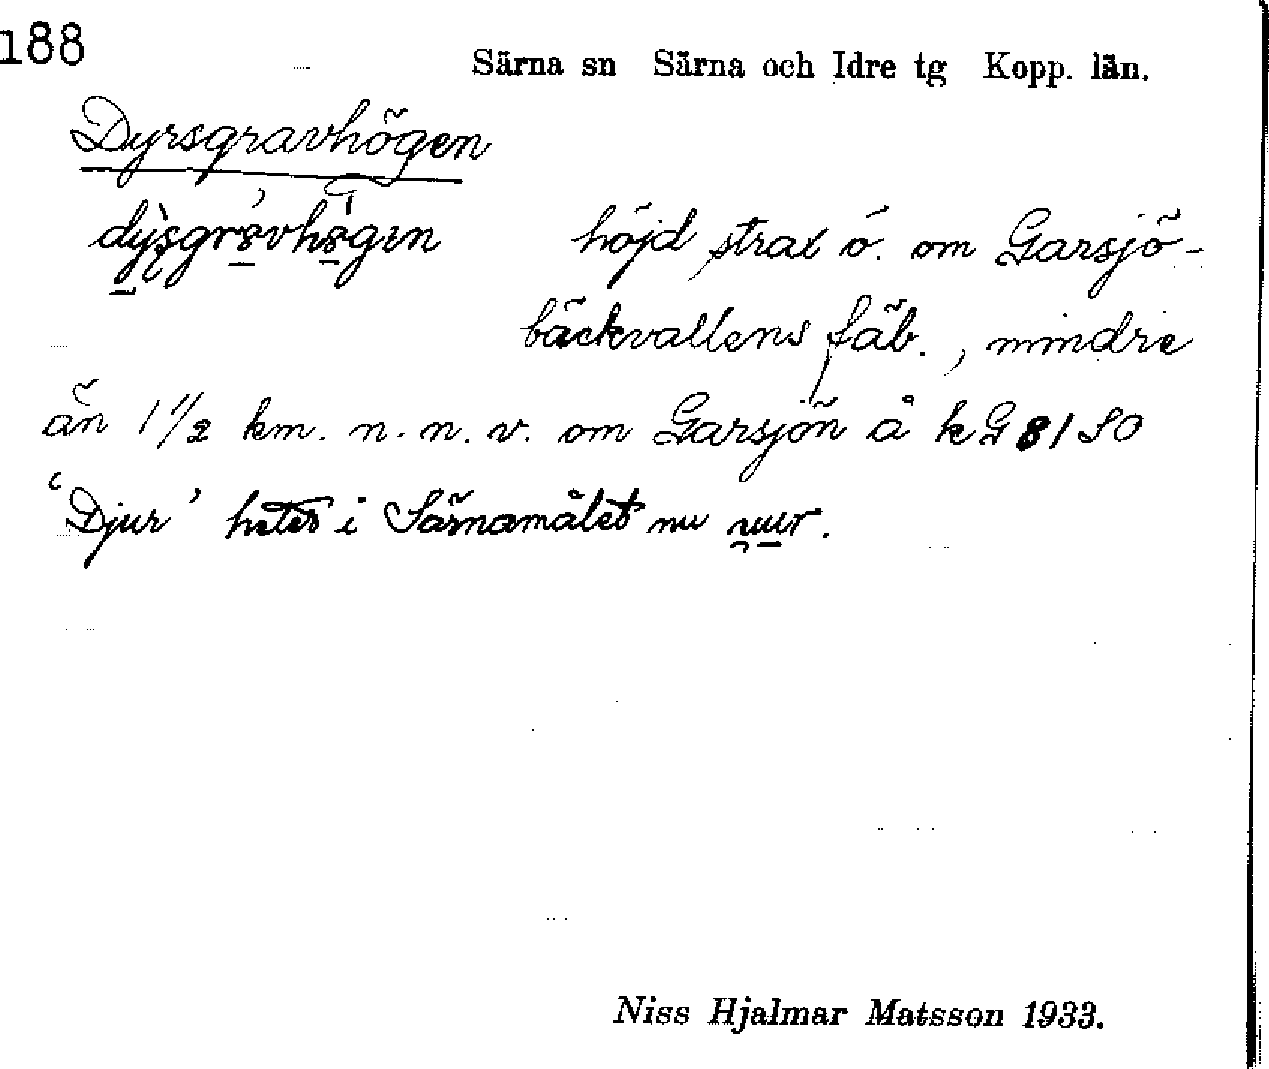 188
Särna sn Särna och Idre tg Kopp. län.
Dyrsgravhögen
höjd strax ö. om Garsjö-
bäckvallens fäb., mindre
än 1 1/2 km. n. n. v. om Garsjön å kG 81 SO
'Djur' heter i Särnamålet nu
Niss Hjalmar Matsson 1933.